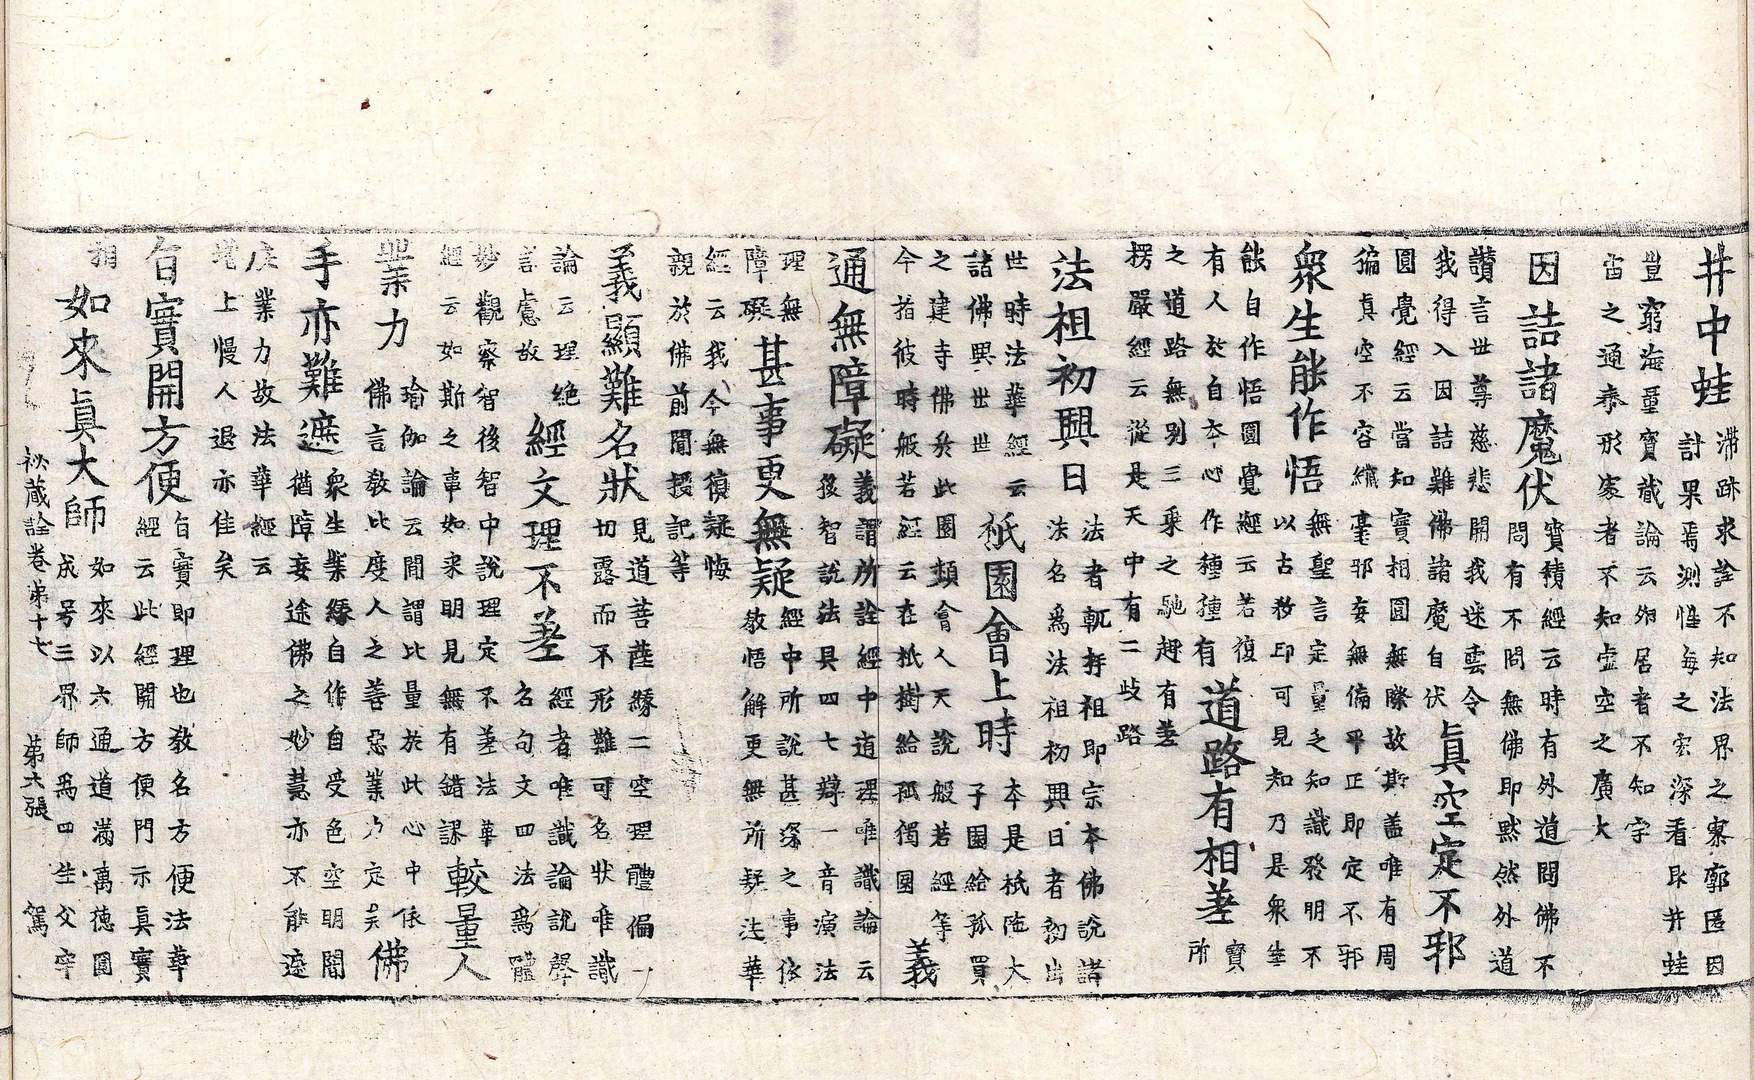 井中蛙
滯跡求詮不知法界之寥廓匿因
計果焉測性海之宏深看取井蛙
豈窮海量寶藏論云外居者不知宇
宙之通泰形家者不知虛空之廣大
因詰諸魔伏
寶積經云時有外道問佛不
問有不問無佛即默然外道
讚言世尊慈悲開我迷雲令
我得入因詰難佛諸魔自伏
眞空定不邪
圓覺經云當知實相圓無際故斯盖唯有周
徧真空不容纖毫邪妄無偏平正即定不邪
衆生能作悟
無聖言定量之知識發明不
以古教印可見知乃是衆生
能自作悟圓覺經云若復
有人於自本心作種種有
道路有相差
實
所
之道路無别三乘之馳趣有差
楞嚴經云從是天中有二歧路
法祖初興日
法者軌持祖即宗本佛說諸
法名爲法祖初興日者初出
世時法華經云
諸佛興出世
祇園會上時
本是祇陁太
子園給孤買
之建寺佛於此園類會人天說般若經等
今指彼時般若經云在祇樹給孤獨園
義
通無障礙
義謂所詮經中道理唯識論云
後智說法具四七辯一音演法
理無
障礙
甚事更無疑
經中所說甚深之事依
教悟解更無所疑法華
經云我今無復疑悔
親於佛前聞授記等
義顯難名狀
見道菩薩緣二空理體偏一
切露而不形難可名狀唯識
論云理絶
言慮故
經文理不差
經者唯識論說聲
名句文四法爲體
妙觀察智後智中說理定不差法華
經云如斯之事如來明見無有錯謬
較量人
業力
瑜伽論云間謂比量於此心中依
佛言教比度人之善惡業乃定矣
佛
手亦難遮
衆生業緣自作自受色空明闇
猶障妄途佛之妙慧亦不能遮
業力故法華經云
增上慢人退亦佳矣
旨實開方便
旨實即理也教名方便法華
經云此經開方便門示眞實
相
如來眞大師
如來以六通道滿萬德圓
成号三界師爲四生父宰
祕蔵詮卷弟十七 第六張 鴛